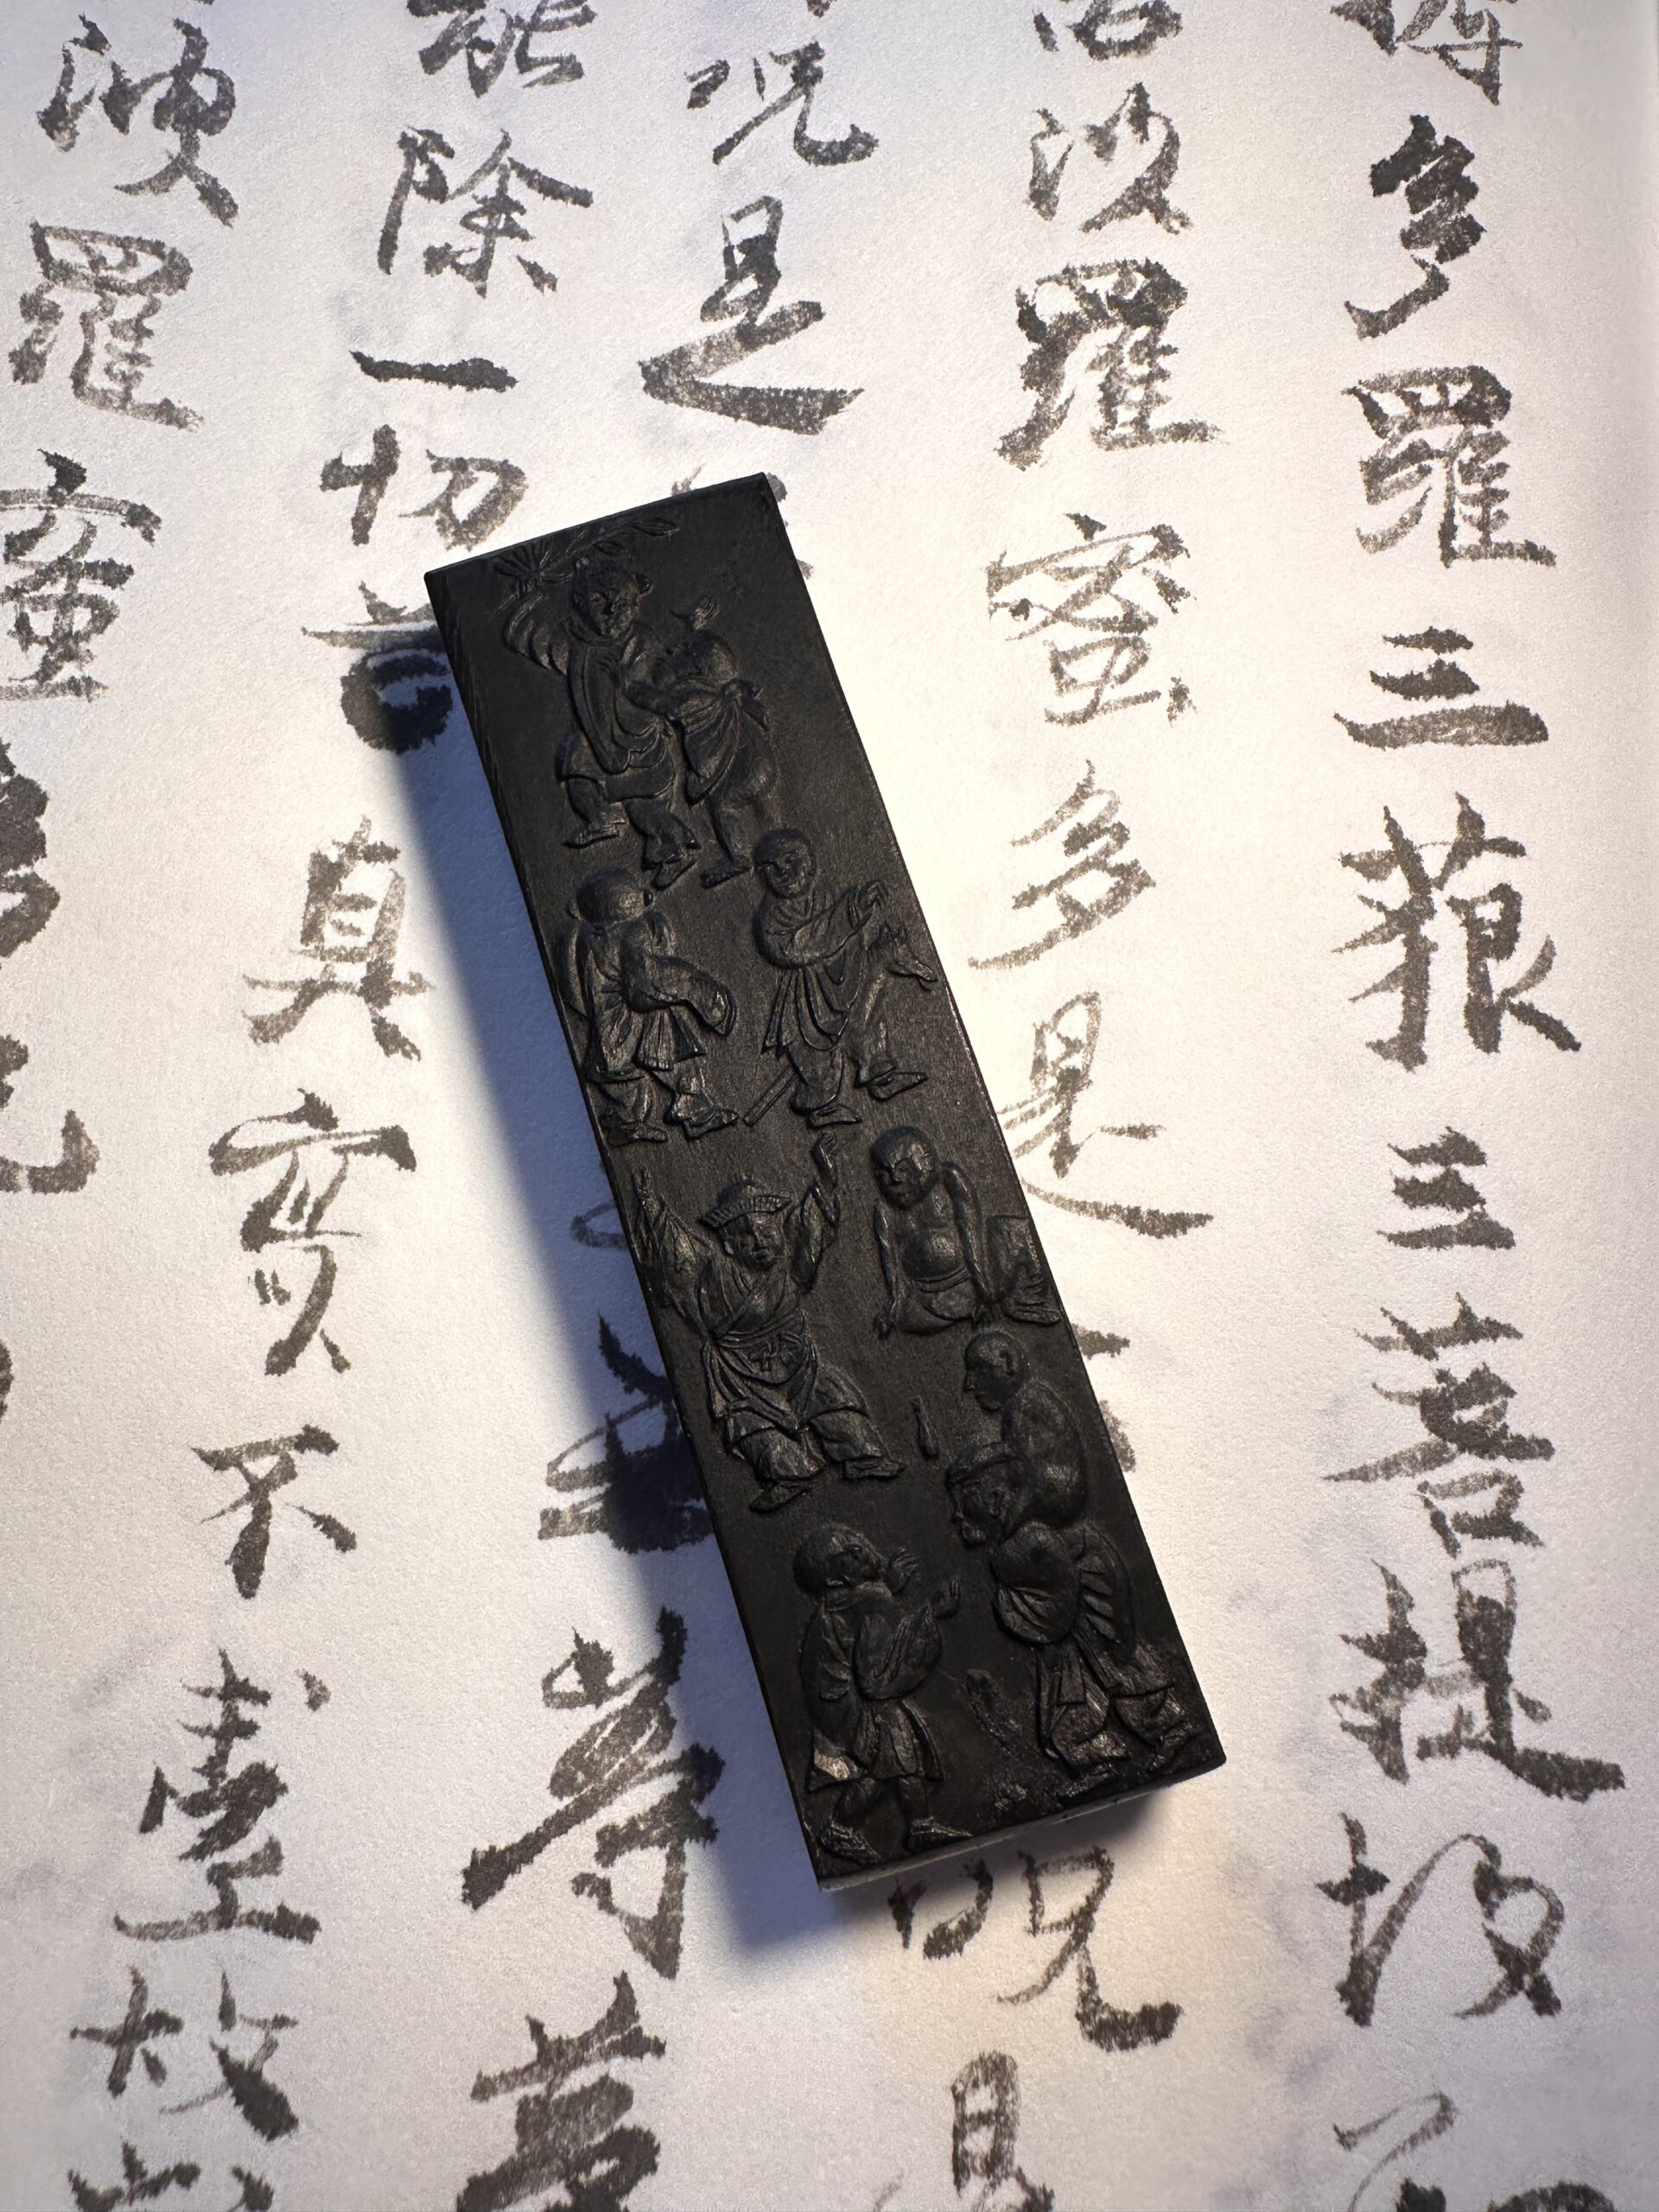 耨多羅三藐三菩提故
若波羅蜜多是咒是
咒是等等
能除一切苦真實不虛故
波羅蜜多咒